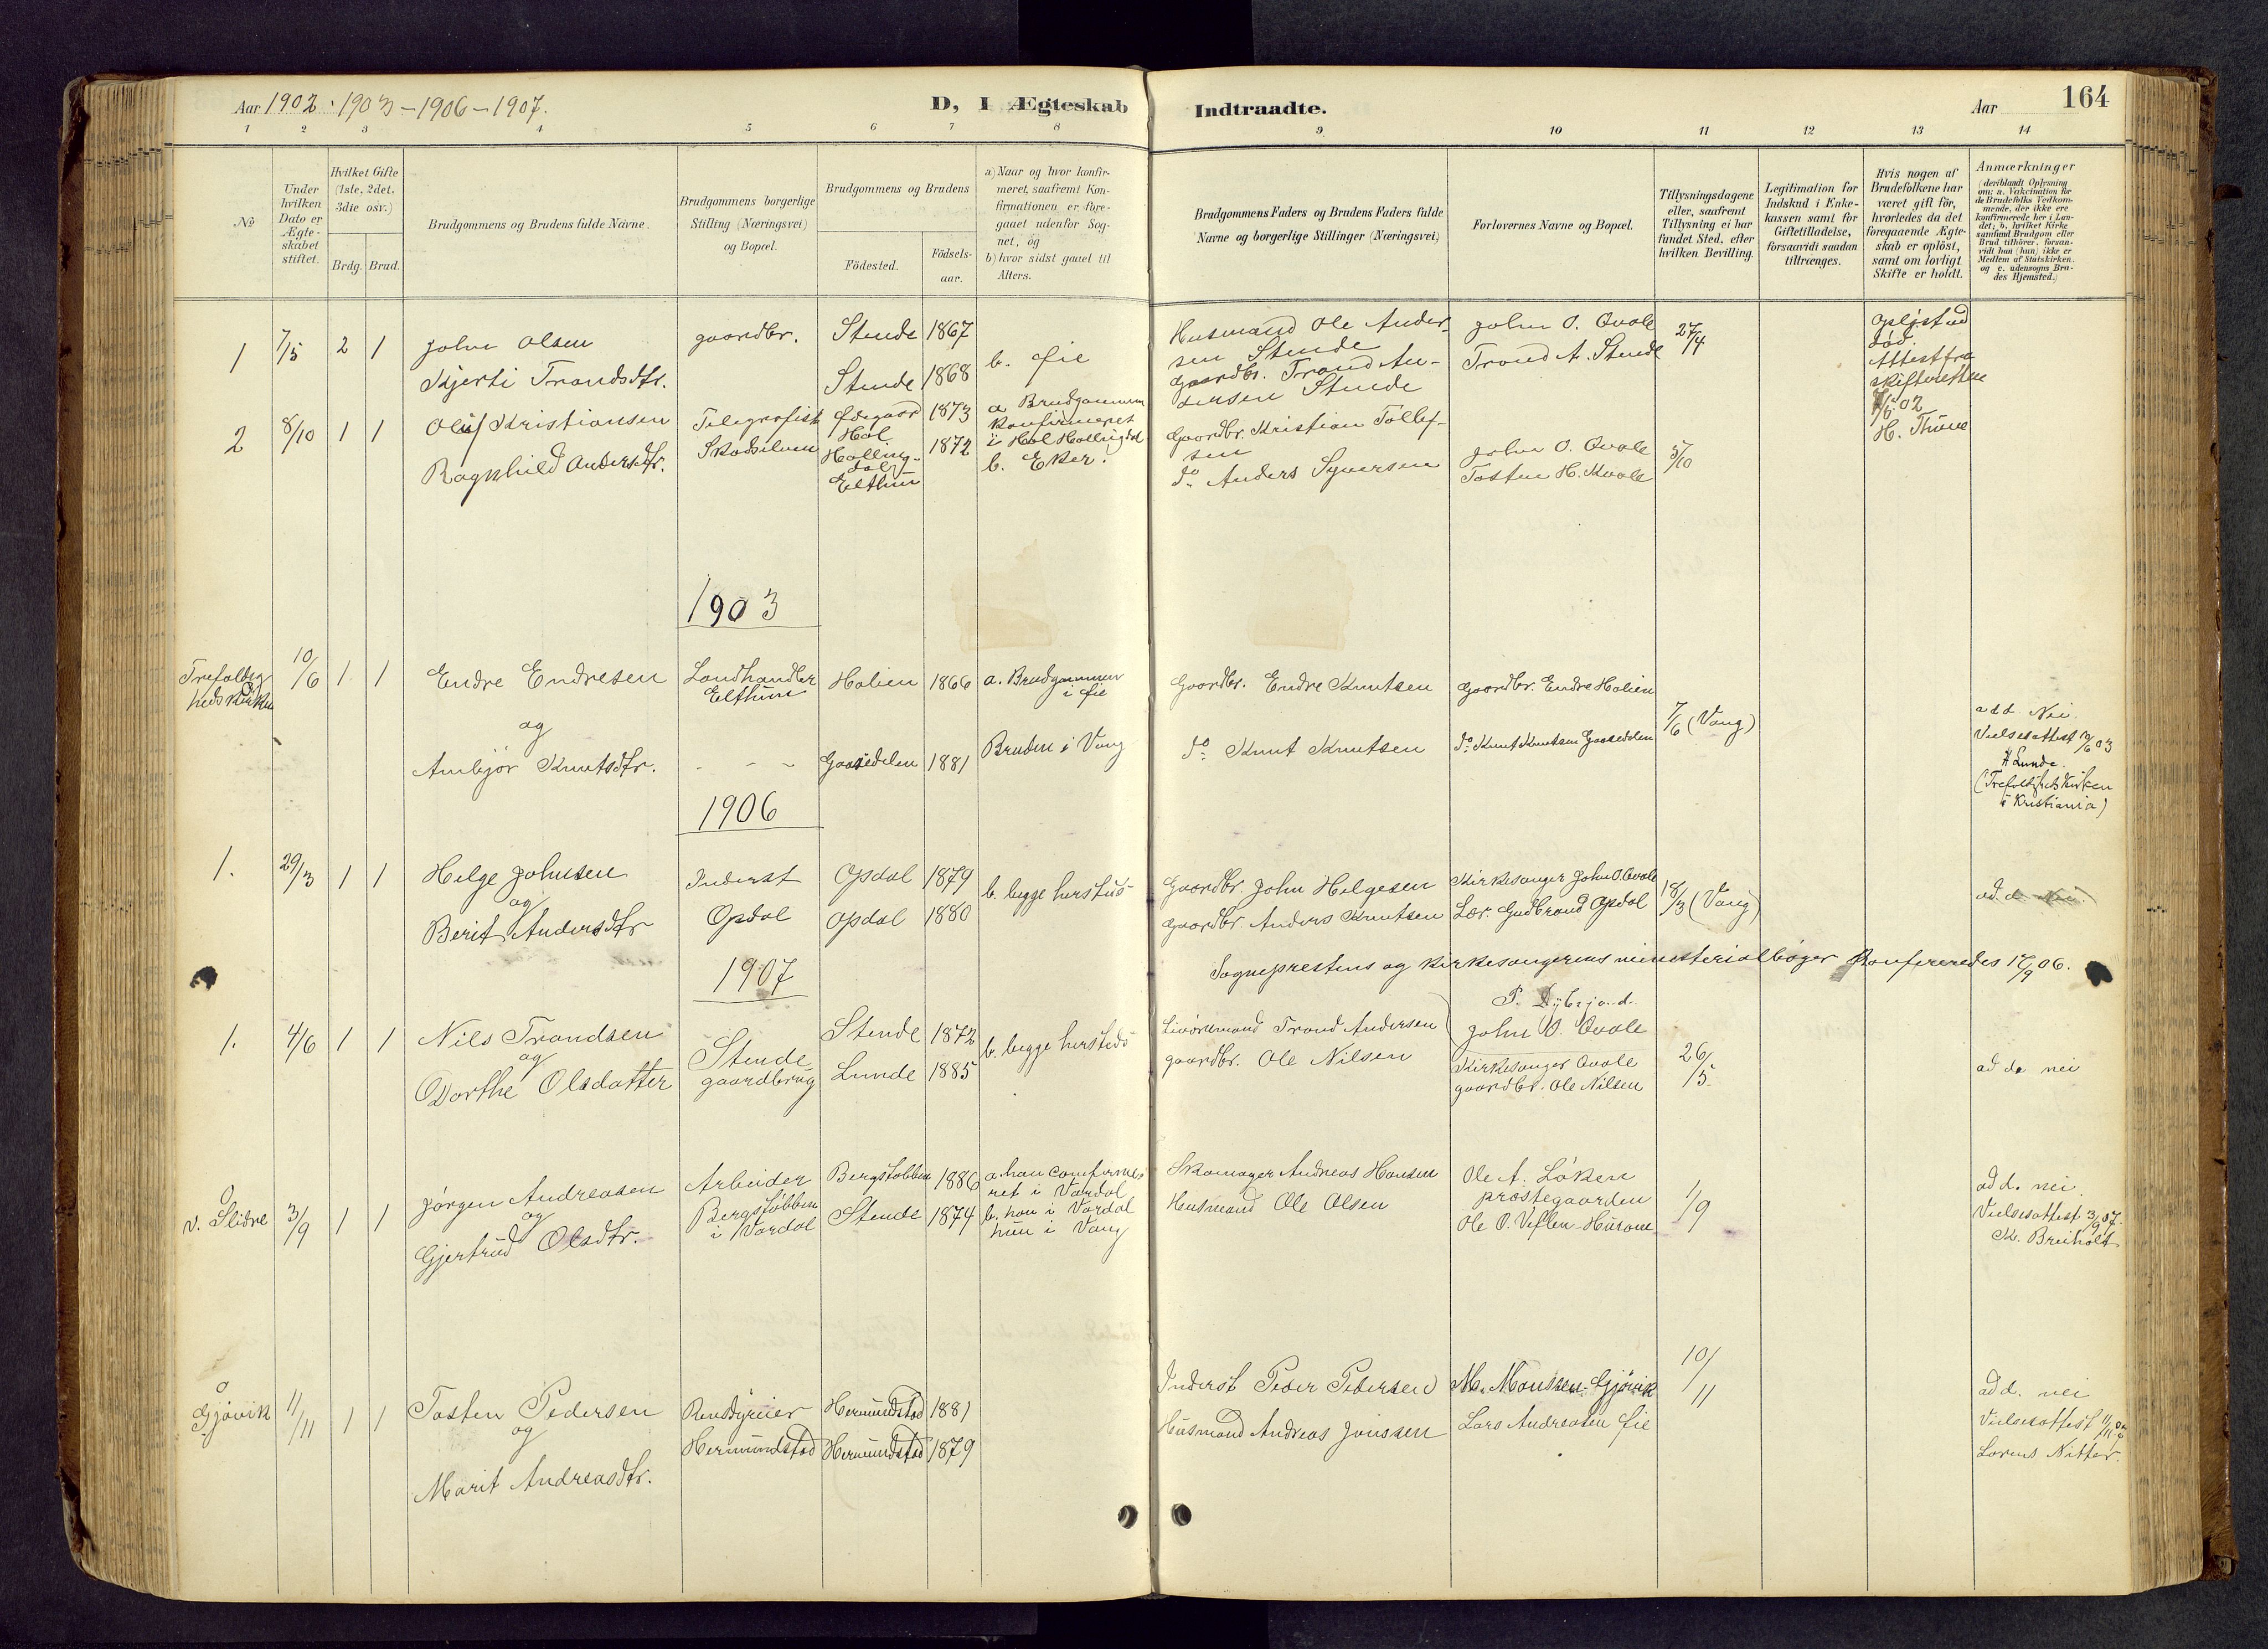 Aar 1902 · 1903 – 1906 – 1907.
D, I Ægteskab
Indtraadte.
Aar
164
1 2 3 4 5 6 7 8 9 10 11 12 13 14
№
Under hvilken Dato er Ægte-skabet stiftet.
Hvilket Gifte (1ste, 2det, 3die osv.)
Brdg. Brud.
Brudgommens og Brudens fulde Navne.
Brudgommens borgerlige Stilling (Næringsvei) og Bopæl.
Brudgommens og Brudens
Födested.
Födsels-aar.
a) Naar og hvor konfir-
meret, saafremt Kon-
firmationen er fore-
gaaet udenfor Sog-
net, og
b) hvor sidst gaaet til
Alters.
Brudgommens Faders og Brudens Faders fulde
Navne og borgerlige Stillinger (Næringsvei)
Forlovernes Navne og Bopæl.
Tillysningsdagene
eller, saafremt
Tillysning ei har
fundet Sted, efter
hvilken Bevilling.
Legitimation for
Indskud i Enke-
kassen samt for
Giftetilladelse,
forsaavidt saadan
tiltrænges.
Hvis nogen af
Brudefolkene har
været gift för,
hvorledes da det
foregaaende Ægte-
skab er oplöst,
samt om lovligt
Skifte er holdt.
Anmærkninger
(deriblandt Oplysning
om: a. Vakcination for
de Brudefolks Vedkom-
mende, der ikke ere
konfirmerede her i Lan-
det; b. hvilket Kirke
samfund Brudgom eller
Brud tilhörer, forsaa-
vidt han (hun) ikke er
Medlem af Statskirken.
og c. udensogns Bru-
des Hjemsted.)
1 7/5 2 1 John Olsen gaardbr. Stende 1867
Kjersti Trondsdtr. Stende 1868 b. Øie
Husmand Ole Ander-
sen Stende
Gaardbr. Trond An-
dersen Stende
John O. Qvale
Trond A. Stende
27/4
død.
Attest fra
skifteretten
H. Thune
2 8/10 1 1 Oluf Kristiansen Telegrafist Ødegaard 1873
Ragnhild Andersdtr. Skodselven Hol
Halling-
dal
Elthun 1872
a Brudgommen
konfirmeret
i Hol Hallingdal
b. Eker.
Gaardbr. Kristian Tollef-
sen
do Anders Syversen
John O. Qvale
Tosten H. Kvale
5/10
1903
Trefoldig
hedskirken
10/6 1 1 Endre Endresen Landhandler
Elthun Holien 1866 a. Brudgommen
i Øie
og
Ambjör Knutsdtr. - - - Gaasedelen 1881 Bruden i Vang
Gaardbr. Endre Knutsen
do Knut Knutsen
Gaardbr. Endre Holien
do Knut Knutsen Gaasedelen
7/6 (Vang)
a d d. Nei.
Vielsesattest 10/6 03
H Lunde.
(Trefoldighedskirken
i Kristiania)
1906
1. 29/3 1 1 Helge Johnsen Inderst Opdal 1879
og
Berit Andersdtr Opdal Opdal 1880
b. begge hersteds
Gaardbr. John Helgesen
Gaardbr. Anders Knutsen
Kirkesanger John O. Qvale
Lær. Gudbrand Opdal
18/3 (Vang)
ad d. nei.
Sogneprestens og kirkesangerens ministerialbøger konfereredes 17/9 06.
1907
1. 4/6 1 1 Nils Trondsen Stende
gaardbrug Stende 1872
og
Dorthe Olsdatter Lunde 1885
b. begge hersteds
Livöremand Trond Andersen
gaardbr. Ole Nilsen
John O. Qvale
Kirkesanger Qvale
gaardbr. Ole Nilsen
26/5
ad d. nei
v. Slidre 3/9 1 1 Jørgen Andreasen
og
Gjertrud Olsdtr.
Arbeider
Bergstøbben
i Vardal
Bergstøbben 1886
Stende 1874
a. han confirme-
ret i Vardal
b. han i Vardal
hun i Vang
Skomager Andreas Hansen
Husmand Ole Olsen
Ole A. Løken
præstegaarden
Ole O. Veflen - Hurum
1/9
ad d. nei.
Vielsesattest 3/9 07.
K. Breiholt
Gjøvik 11/11 1 1 Tosten Pedersen
og
Marit Andreasdtr.
Rensdyreier
Hermundstad
Hermundstad 1881
Hermundstad 1879
Inderst Peder Pedersen
Husmand Andreas Jonssen
M. Monssen - Gjøvik
Lars Andreasen Øie
10/11
ad d. nei
Vielsesattest 11/11 07